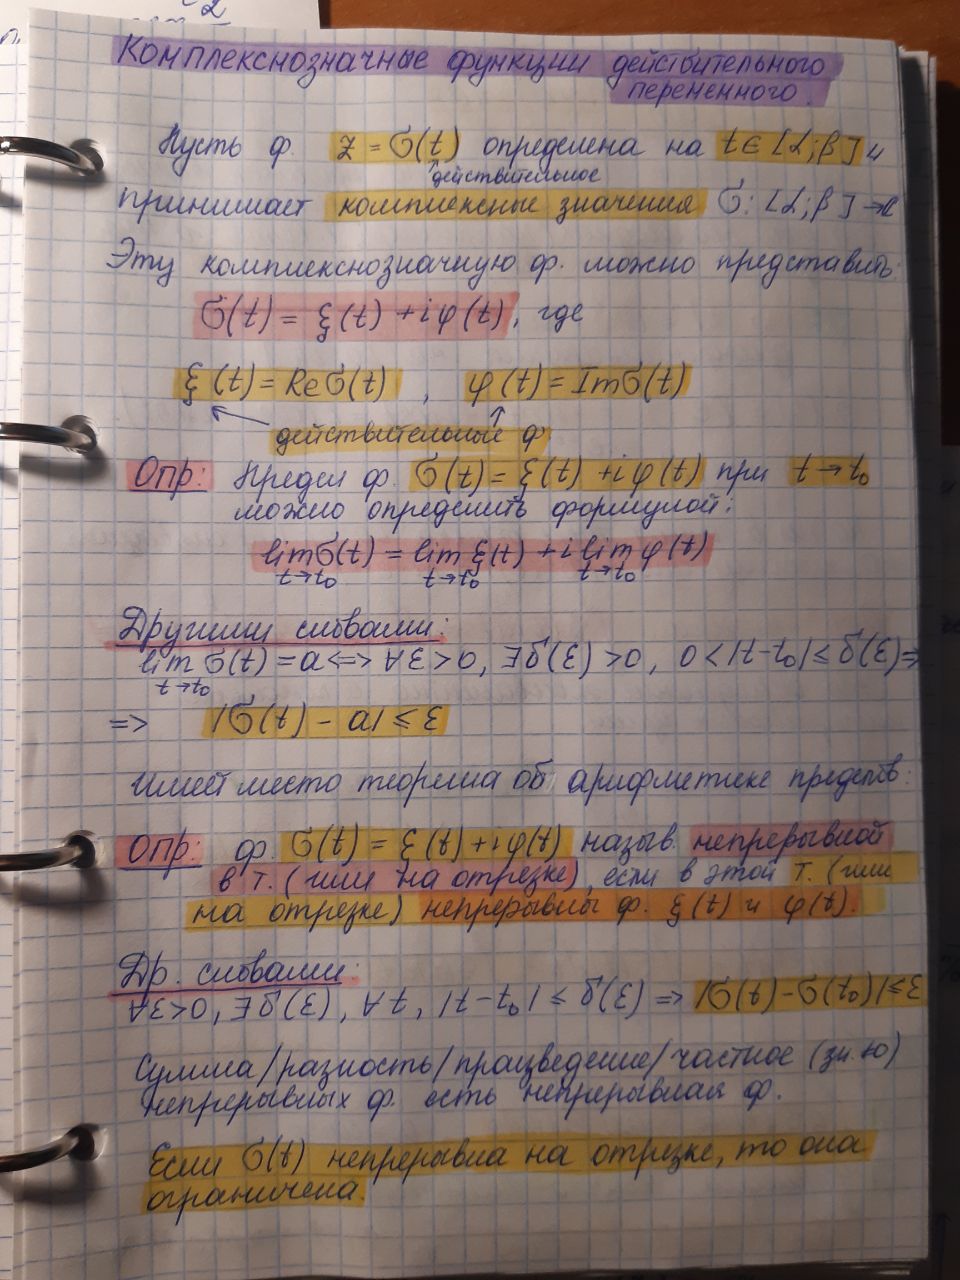 Комплекснозначные функции действительного
переменного.
Пусть ф. z = σ(t) определена на t ∈ [α; β] и
действительное
принимает комплексные значения σ: [α; β] → ℂ
Эту комплекснозначную ф. можно представить:
σ(t) = ξ(t) + iφ(t), где
ξ(t) = Re σ(t), φ(t) = Im σ(t)
действительные ф
Опр: Предел ф. σ(t) = ξ(t) + iφ(t) при t → t₀
можно определить формулой:
lim σ(t) = lim ξ(t) + i lim φ(t)
t→t₀ t→t₀ t→t₀
Другими словами:
lim σ(t) = a <=> ∀ε>0, ∃δ(ε)>0, 0<|t-t₀|≤δ(ε) =>
t→t₀
=> |σ(t) - a| ≤ ε
Имеет место теорема об арифметике пределов:
Опр: ф. σ(t) = ξ(t) + iφ(t) назыв. непрерывной
в т. (или на отрезке), если в этой т. (или
на отрезке) непрерывны ф. ξ(t) и φ(t).
Др. словами:
∀ε>0, ∃δ(ε), ∀t, |t-t₀| ≤ δ(ε) => |σ(t)-σ(t₀)|≤ε
Сумма/разность/працведение/частное (зн.≠0)
непрерывных ф. есть непрерывная ф.
Если σ(t) непрерывна на отрезке, то она
ограничена.